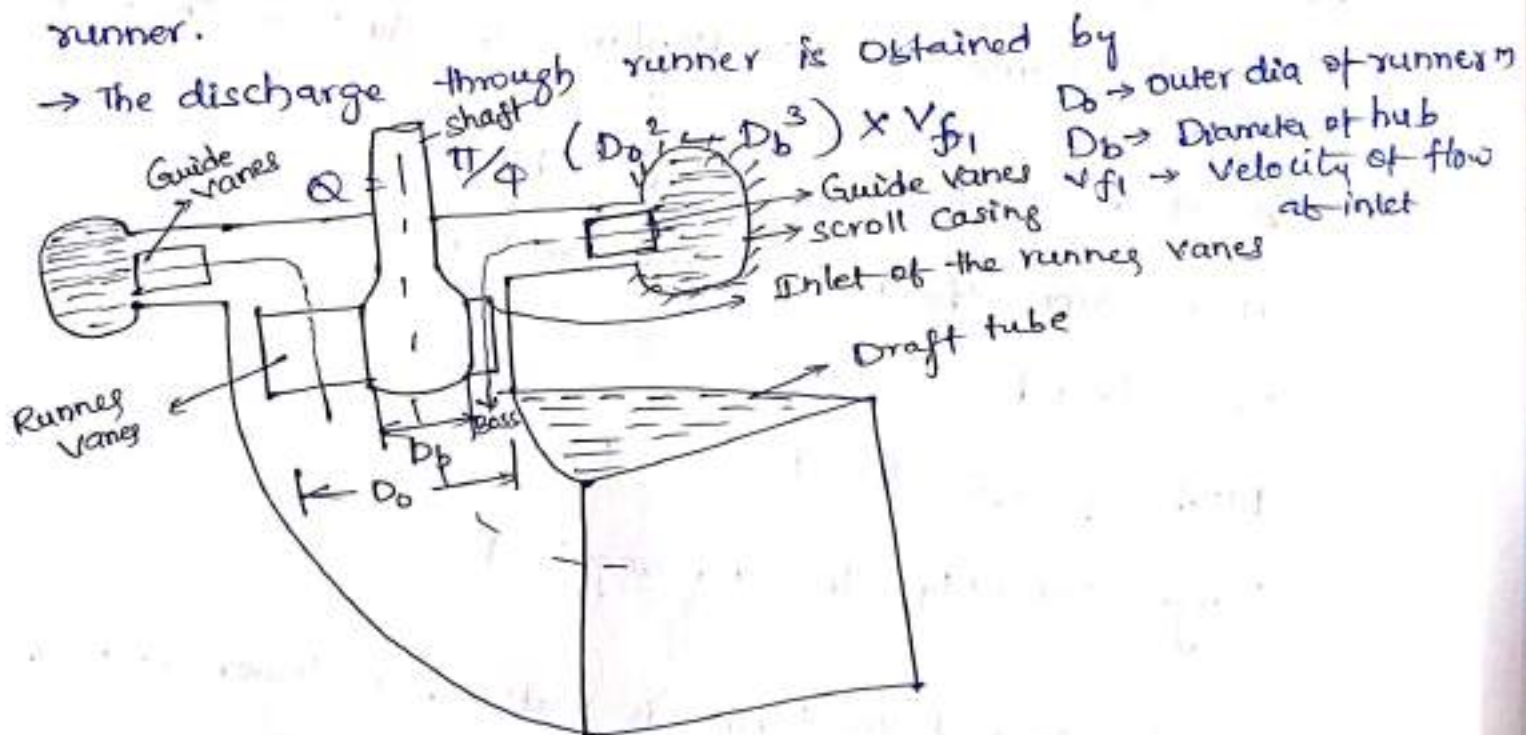 runner.
→ The discharge through runner is obtained by
Q = π/4 (Do² - Db³) × Vf1
Do → outer dia of runner
Db → Diameter of hub
Vf1 → velocity of flow
at inlet
shaft
Guide
vanes
Guide vanes
scroll casing
Inlet of the runner vanes
Draft tube
Runner
vanes
Boss
Db
Do